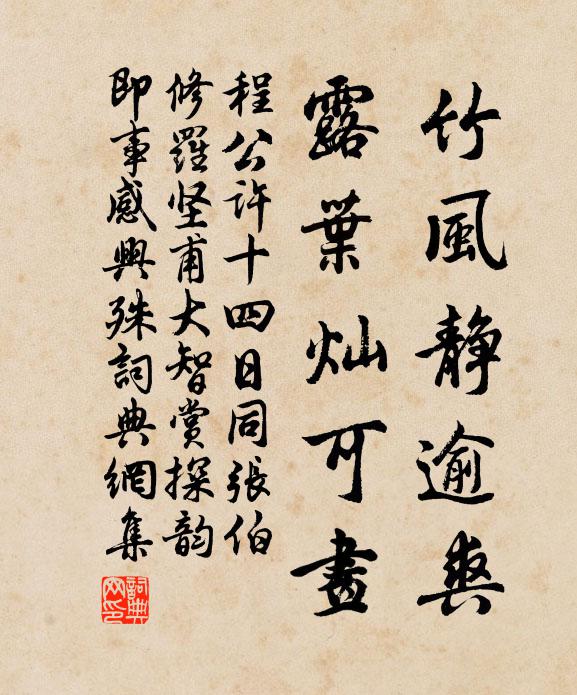 竹風静逾爽
露葉灿可畫
程公许十四日同張伯
修羅坚甫大智赏探韵
即事感興殊詞典網集
詞典網印